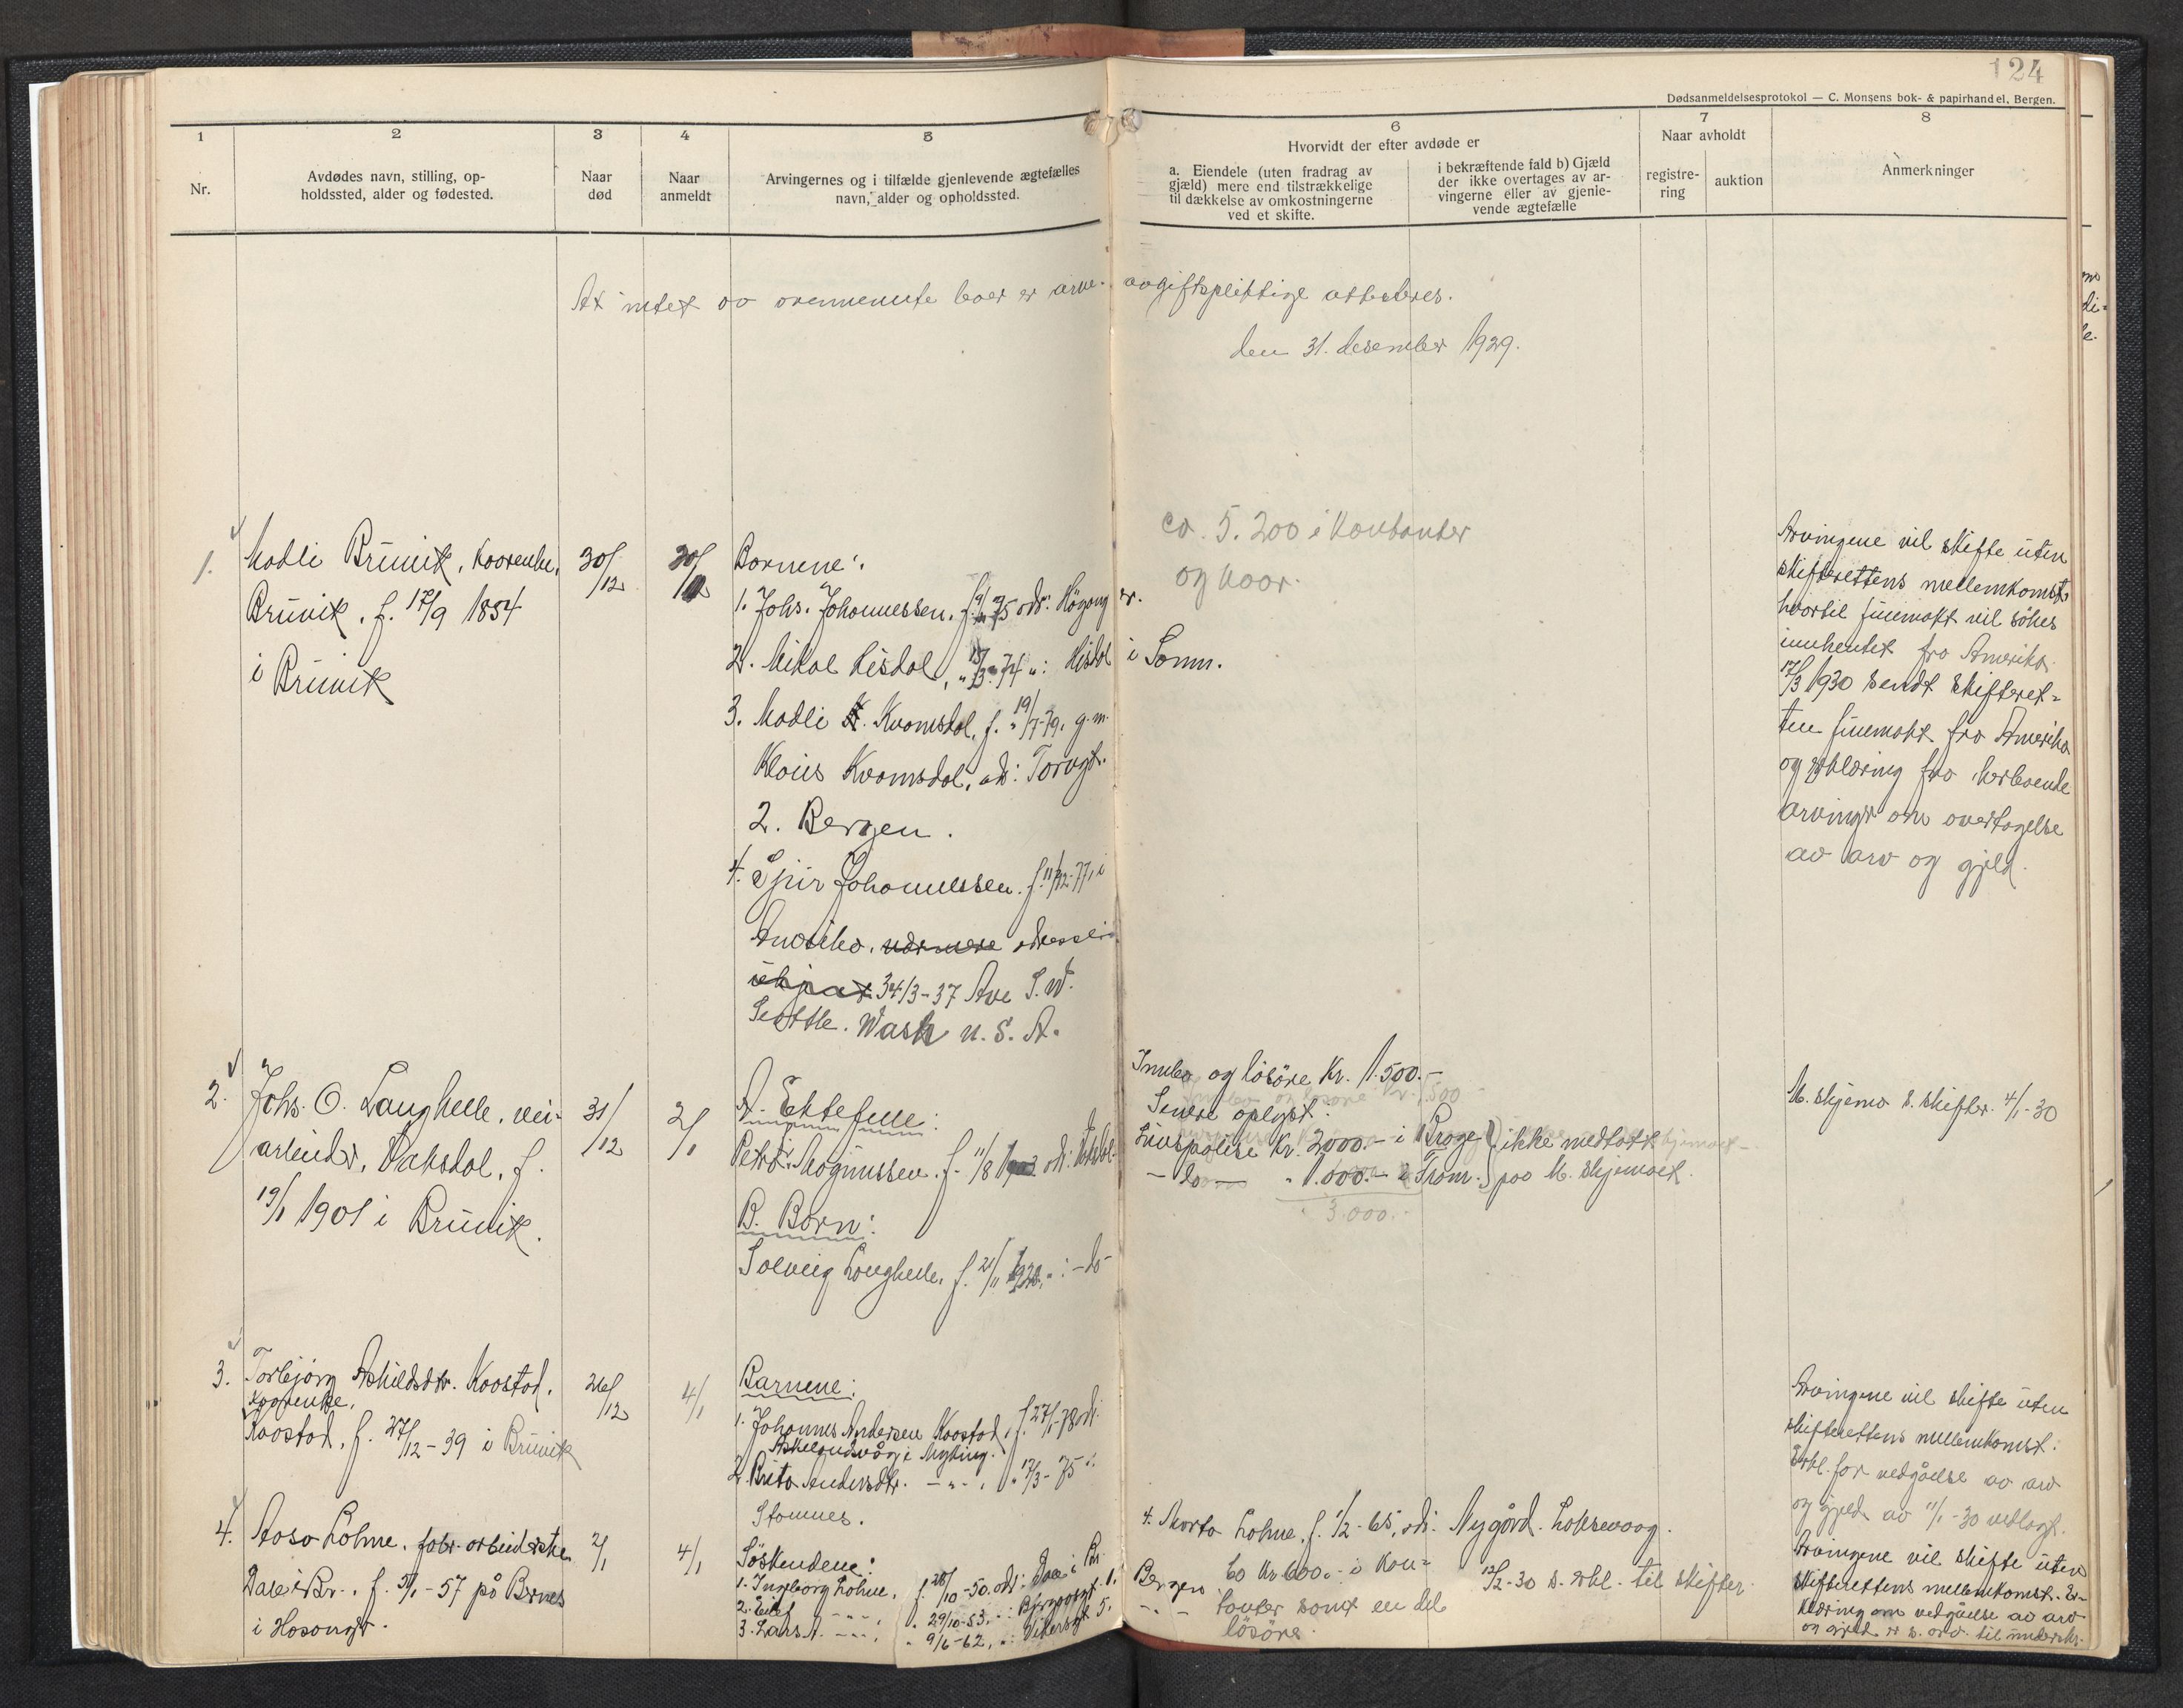 124
Dødsanmeldelsesprotokol — C. Monsens bok- & papirhandel, Bergen.
1
2
3
4
5
6
7
8
Nr.
Avdødes navn, stilling, op-
holdssted, alder og fødested.
Naar
død
Naar
anmeldt
Arvingernes og i tilfælde gjenlevende ægtefælles
navn, alder og opholdssted.
Hvorvidt der efter avdøde er
a. Eiendele (uten fradrag av
gjæld) mere end tilstrækkelige
til dækkelse av omkostningerne
ved et skifte.
i bekræftende fald b) Gjæld
der ikke overtages av ar-
vingerne eller av gjenle-
vende ægtefælle
Naar avholdt
registre-
ring
auktion
Anmerkninger
At intet av ovennevnte boer er arve-avgiftsplittige attesteres.
den 31. desember 1929.
1.
Madli Bruvik, kaarenke,
Bruvik, f. 17/9 1854
i Bruvik
30/12
30/12
Barnene:
1. Johs. Johannessen, f. 75 adr: Högang er.
2. Mikal Lisdal, 74 i Samn.
3. Madli K. Kvamsdal, f. 19/7-79, g.m.
Klaus Kvamsdal, ad: Torvgt.
2. Bergen.
4. Sjur Johannessen, f. 11/12-77, i
Amerika, nærmere adresse
ukjent 3413-37 Ave S.W.
Seattle. Wash U.S.A.
ca. 5.200 i kontanter
og kaar.
Arvingene vil skifte uten
skifterettens mellemkomst,
hvortil fuemakt vil søkes
innhentet fra Amerika.
17/3 1930 sendt skifteret-
ten fuemakt fra Amerika
og erklæring fra herboende
arvinger om overtagelse
av arv og gjeld.
2.
Johs. O. Langhelle, vei-
arbeider, Vaksdal, f.
19/1 1901 i Bruvik.
31/12
2/1
A. Ektefelle:
Petra Magnussen, f. 11/8 adr: Vaksdal
B. Barn:
Solveig Langhelle, f. 21/11 -do-
Innbo og løsøre Kr. 1.500.-
Senere oplyst:
Livspolise Kr. 2000.- i Brage) ikke medtatt
-do- " 1.000.- i Fram.) paa M. skjemaet.
3.000.-
M. skjema s. skifter. 4/1-30
3.
Torbjørg Askildsdtr. Kaastad,
kaarenke,
Kaastad, f. 27/12-39 i Bruvik
26/12
4/1
Barnene:
1. Johannes Andersen Kaastad, f. 27/1-78 adr:
Askelandsvåg i Myking.
2. Brita Andersdtr. - " - , " 17/3-75 ":
Stamnes.
Arvingene vil skifte uten
skifterettens mellemkomst.
Erkl. for vedgåelse av arv
og gjeld av 11/1-30 vedlagt.
4.
Aasa Lohne, fabr-arbeiderske
Dale i Br., f. 5/1-57 på Bernes
i Hosanger.
2/1
4/1
Søskendene:
1. Ingeborg Lohne, f. 28/10-50. adr: Dale i Br.
2. Eilef - " - , " 29/10-53. ":
3. Lars A. - " - , " 9/6-62, ":
4. Marta Lohne, f. 1/2-65, adr. Nygård. Laksevaag.
Bergen
Ca Kr 600.- i kon-
tanter samt en del
løsøre.
12/2-30 s. erkl. til skifter.
Arvingene vil skifte uten
skifterettens mellemkomst. Er-
klæring om vedgåelse av arv
og gjeld er s. arv. til underskr.